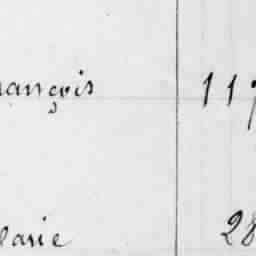 rançois 117
Marie 28